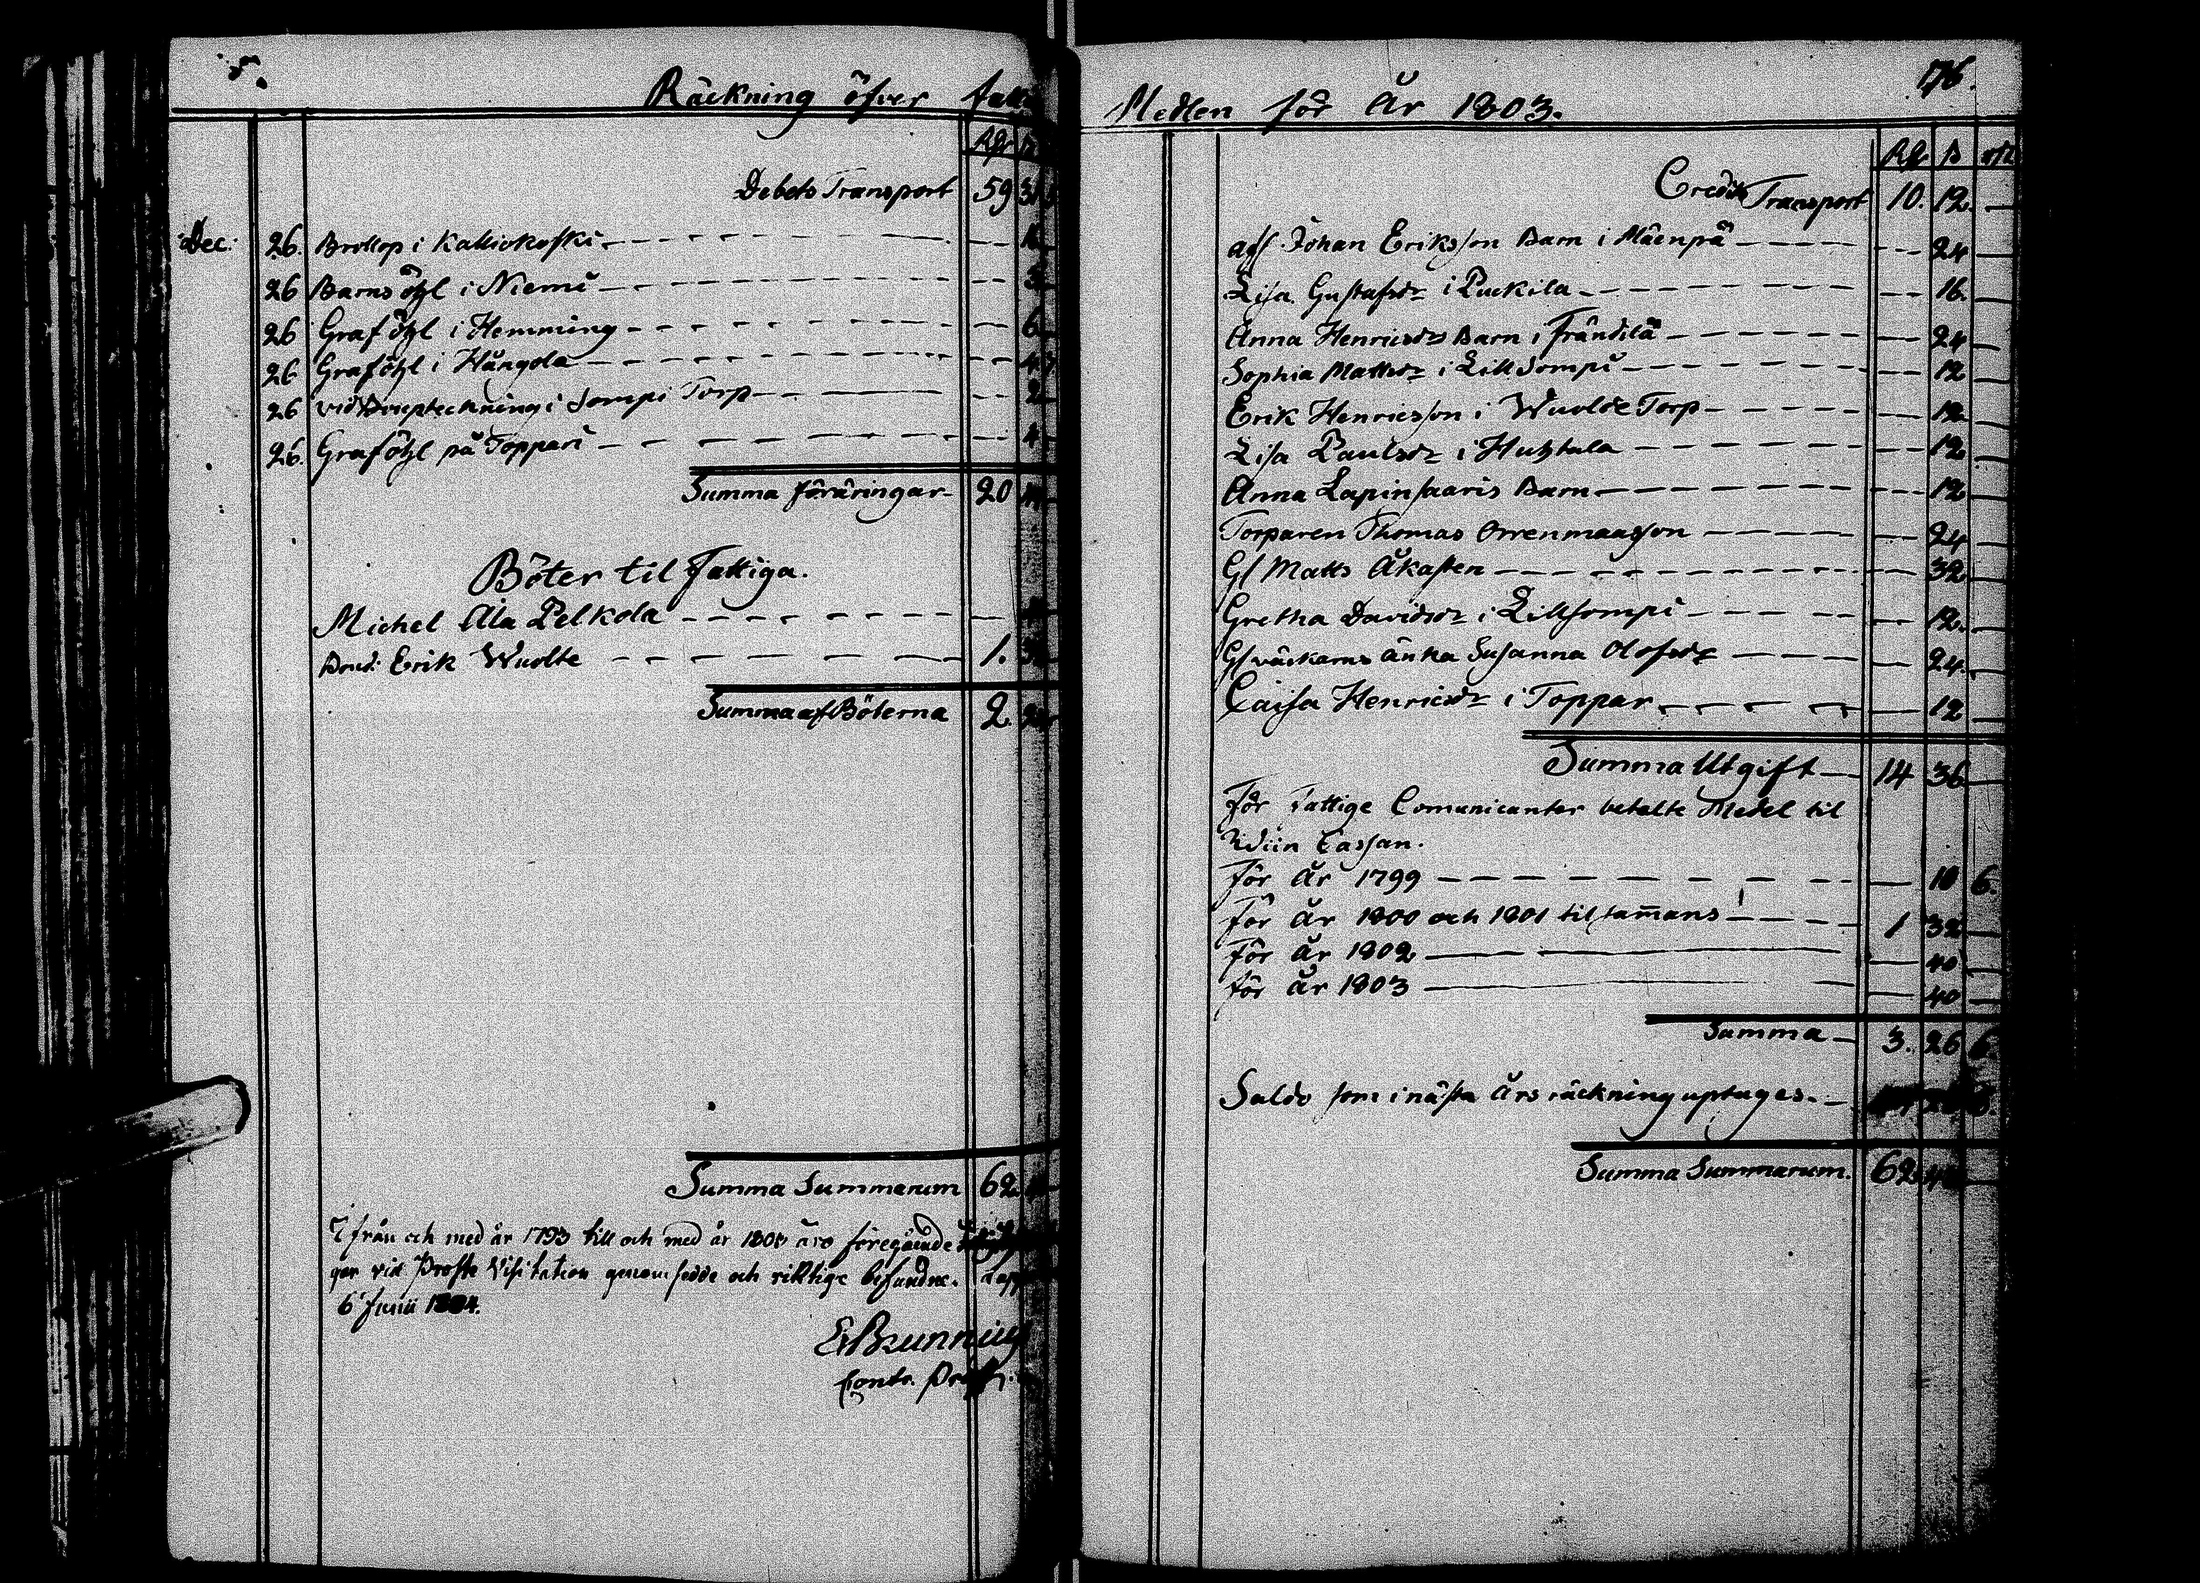 Räckning öfver
Rdr
Debets Transport 59
Dec. 26. Brollop i Kalliokoski
26 Barns öhl i Niemi
26 Graf öhl i Hemming 6
26 Graföhl i Hångola
26 vid i Sompi Torp 2
26. Graföhl på Toppari 4
Summa föräringar 20
Böter til Fattiga.
Michel Ala Pelkola
Bond: Erik Wuolte 1.
Summa af Böterna 2.
Summa Summarum 62.
från och med år 1793 till och med år äro föregående
gar vid Prosts Visitation genomsedde och riktige befundne.
6 Junii
EBrunnius
Contr. Prost
176.
Medlen för År 1803.
Rdr ß
Credits Transport 10. 12. —
Johan Eriksson Barn i Mäenpä — 24 —
Lisa Gustafsdr i Puckila — 16. —
Anna Henricsdrs Barn i Fräntilä — 24 —
Sophia Mattsdr i Lill Sompi — 12 —
Erik Henricsson i Wuolde Torp — 12 —
Lisa Paulsdr i Huhtala — 12 —
Anna Lapinsaaris Barn — 12 —
Torparen Thomas Orrenmaasson — 24 —
Gl Matts Åkasten — 32 —
Gretha Davidsdr i Lillsompi — 12. —
Gl väckarns änka Susanna Olofsdr — 24. —
Caisa Henricsdr i Toppar — 12 —
Summa Utgift — 14 36 —
För Fattige Comunicanter betalte Medel til
Wiin Cassan.
För År 1799 — 10 6.
För År 1800 och 1801 tilsamans — 1 32 —
För År 1802 — 40 —
för År 1803 — 40 —
Summa — 3. 26 6.
Saldo som i nästa Års räckning uptages. —
Summa Summarum. 62